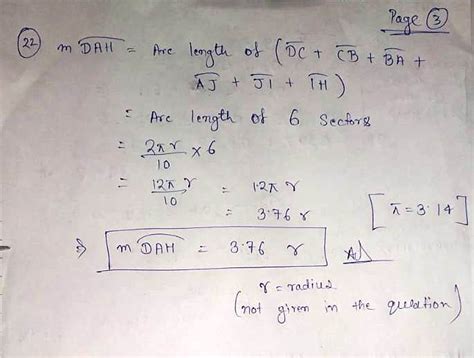 Page ③
㉒ m D͡AH = Arc length of (D͡C + C͡B + B͡A +
A͡J + J͡I + I͡H)
= Arc length of 6 Sectors
= 2πr/10 × 6
= 12π/10 r = 1.2π r
= 3.76 r [π = 3.14]
⇒ m D͡AH = 3.76 r
r = radius
(not given in the question)